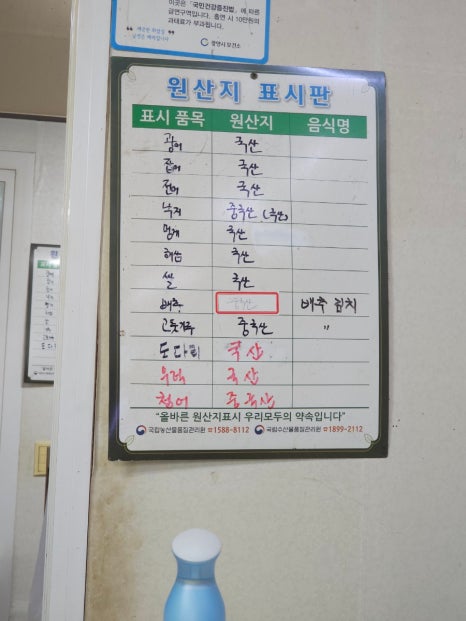 이곳은 「국민건강증진법」에 따른
금연구역입니다. 흡연 시 10만원의
과태료가 부과됩니다.
광양시 보건소
원산지 표시판
표시 품목 원산지 음식명
광어 국산
국산
전어 국산
낙지 중국산 (국산)
멍게 국산
해삼 국산
쌀 국산
배추 중국산 배추 김치
고춧가루 중국산 〃
도다리 국산
우럭 국산
중국산
"올바른 원산지표시 우리모두의 약속입니다"
국립농산물품질관리원 ☎1588-8112 국립수산물품질관리원 ☎1899-2112